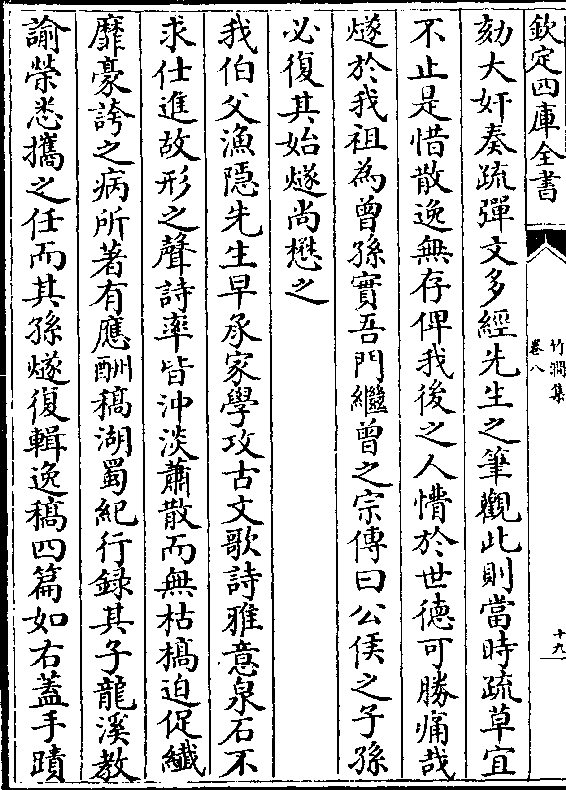 欽定四庫全書
竹澗集
卷八
十九
劾大奸奏疏彈文多經先生之筆觀此則當時疏草宜
不止是惜散逸無存俾我後之人懵於世德可勝痛哉
燧於我祖為曾孫實吾門繼曾之宗傳曰公侯之子孫
必復其始燧尚懋之
我伯父漁隱先生早承家學攻古文歌詩雅意泉石不
求仕進故形之聲詩率皆沖淡蕭散而無枯槁迫促纎
靡豪誇之病所著有應酬稿湖蜀紀行録其子龍溪教
諭榮悉攜之任而其孫燧復輯逸稿四篇如右蓋手蹟